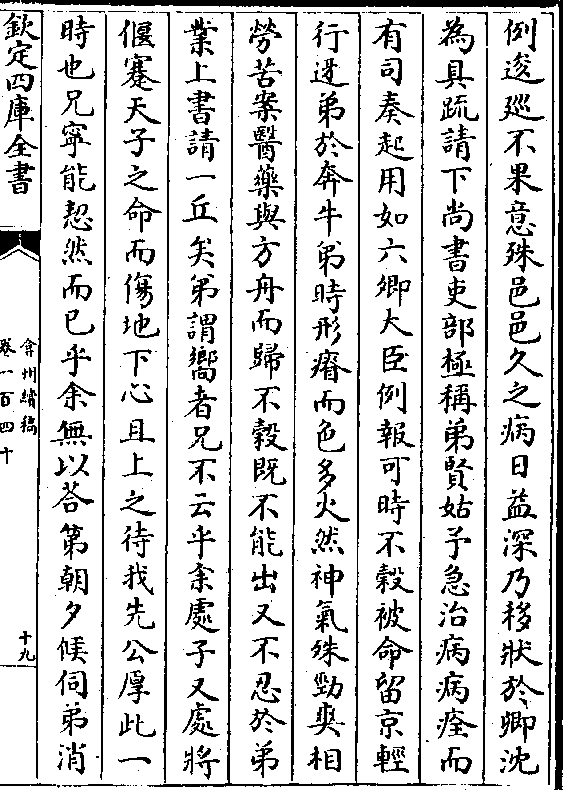 例逡廵不果意殊邑邑久之病日益深乃移狀於卿沈
為具疏請下尚書吏部極稱弟賢姑予急治病病痊而
有司奏起用如六卿大臣例報可時不榖被命留京輕
行迓弟於奔牛弟時形瘠而色多火然神氣殊勁爽相
勞苦案醫藥與方舟而歸不榖既不能出又不忍於弟
業上書請一丘矣弟謂嚮者兄不云乎余處子又處將
偃蹇天子之命而傷地下心且上之待我先公厚此一
時也兄寧能恝然而已乎余無以荅第朝夕候伺弟消
欽定四庫全書
弇州續稿
卷一百四十
十九